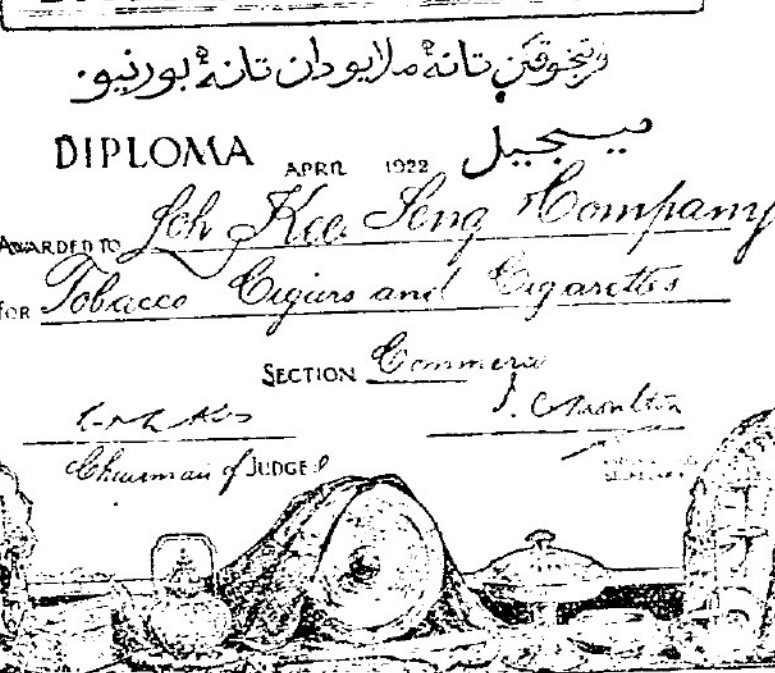 فرتنجوقكن تانه ملايو دان تانه بورنيو.
DIPLOMA APRIL 1922
AWARDED TO Loh Kee Seng Company
FOR Tobacco Cigars and Cigarettes
SECTION Commerce
Chairman of JUDGES
SECRETARY